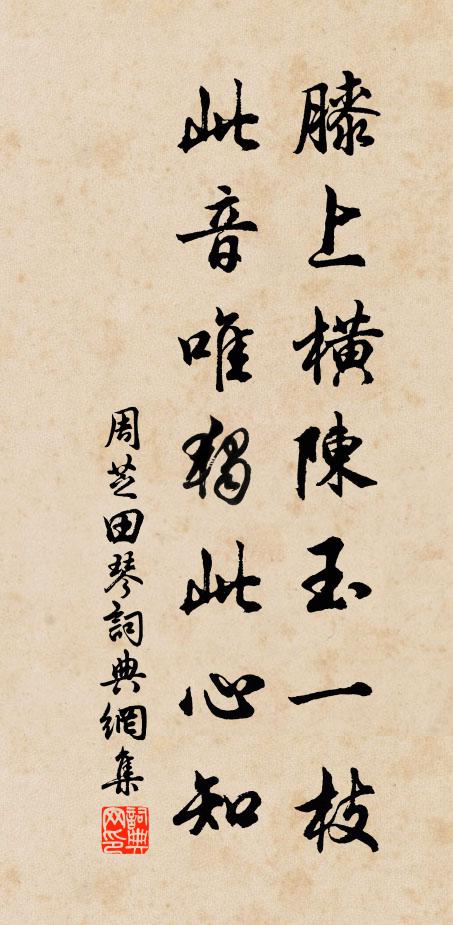 膝上橫陳玉一枝
此音唯獨此心知
周芝田琴詞典網集
詞典網印